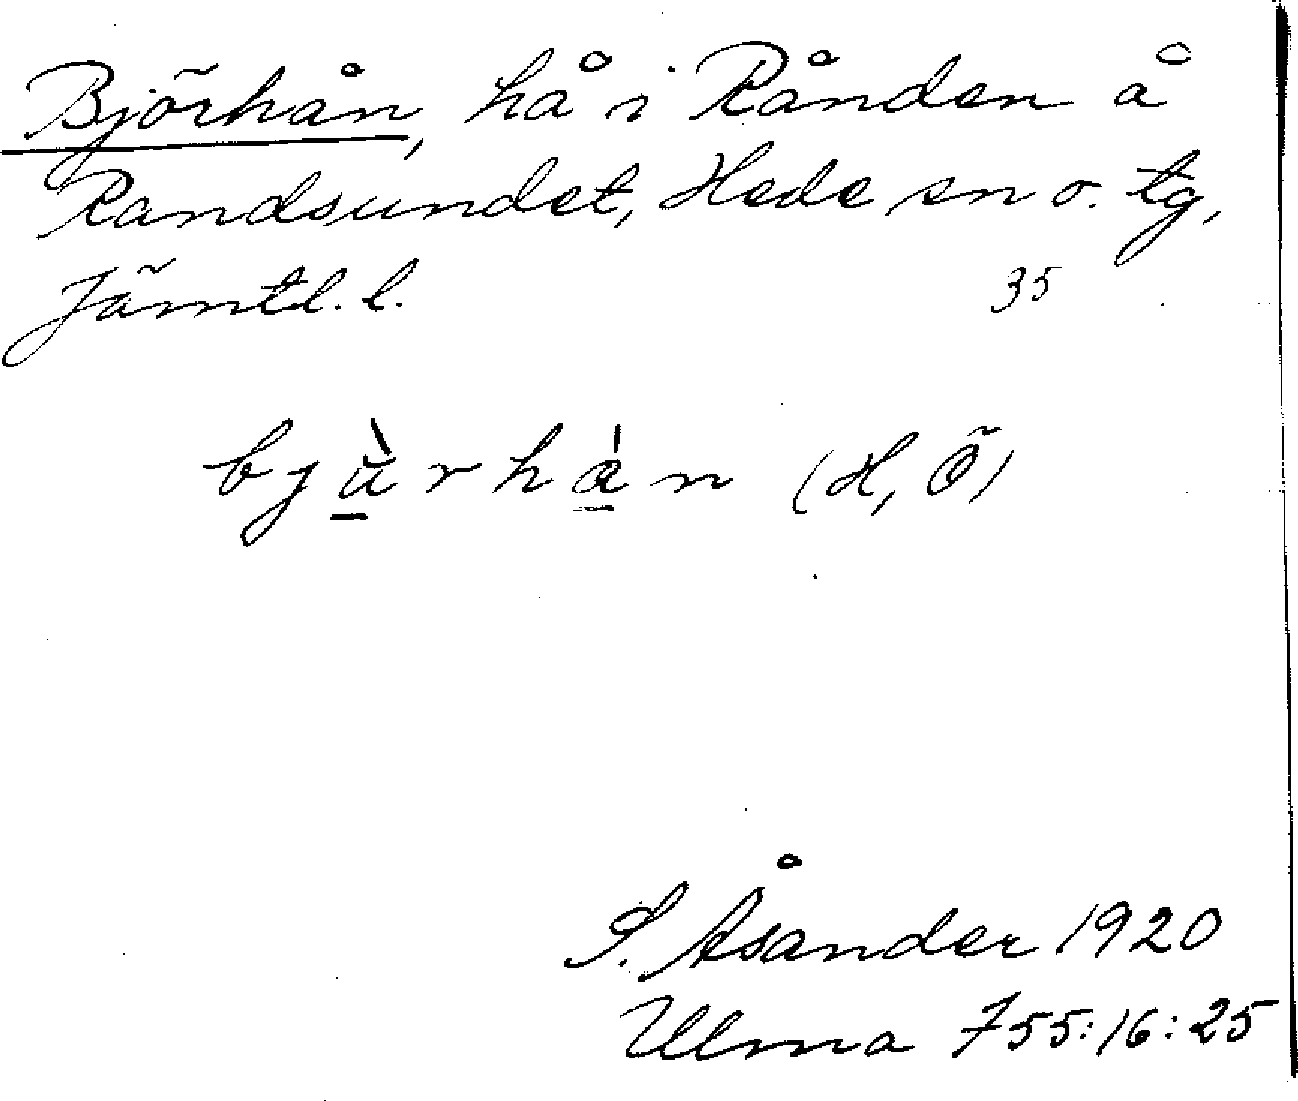 Björhån, hå i Rånden å
Randsundet, Hede sn o. tg,
Jämtl. l. 35
bjùrhán (H, Ö)
S. Åsander 1920
Ulma 755:16:25